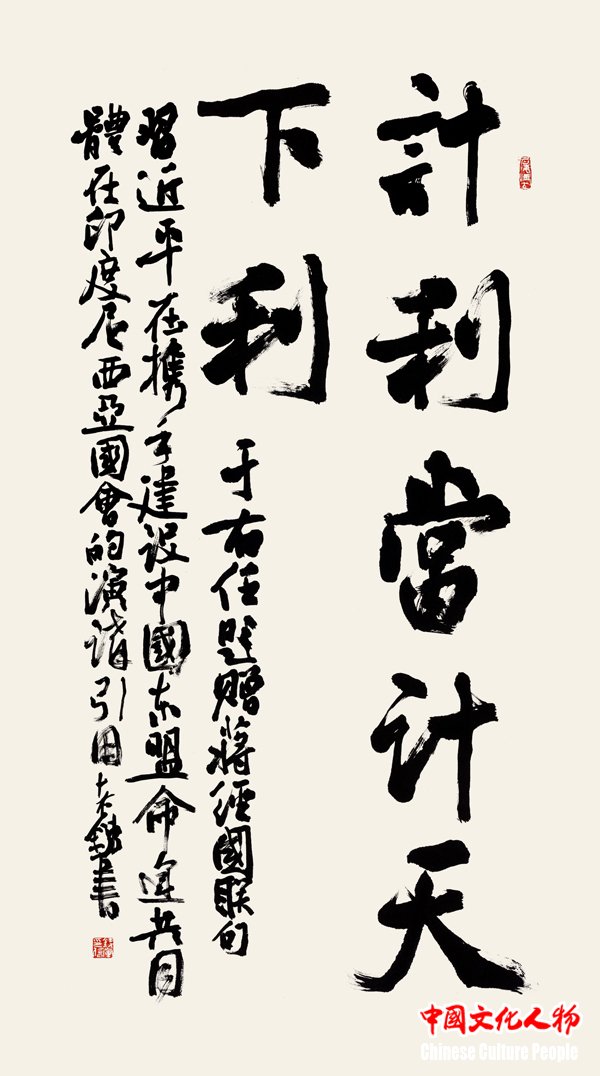 計利當计天
下利
于右任題贈蔣經國联句
習近平在携手建设中國东盟命运共同
體在印度尼西亞國會的演講引用
书
中國文化人物
Chinese Culture People